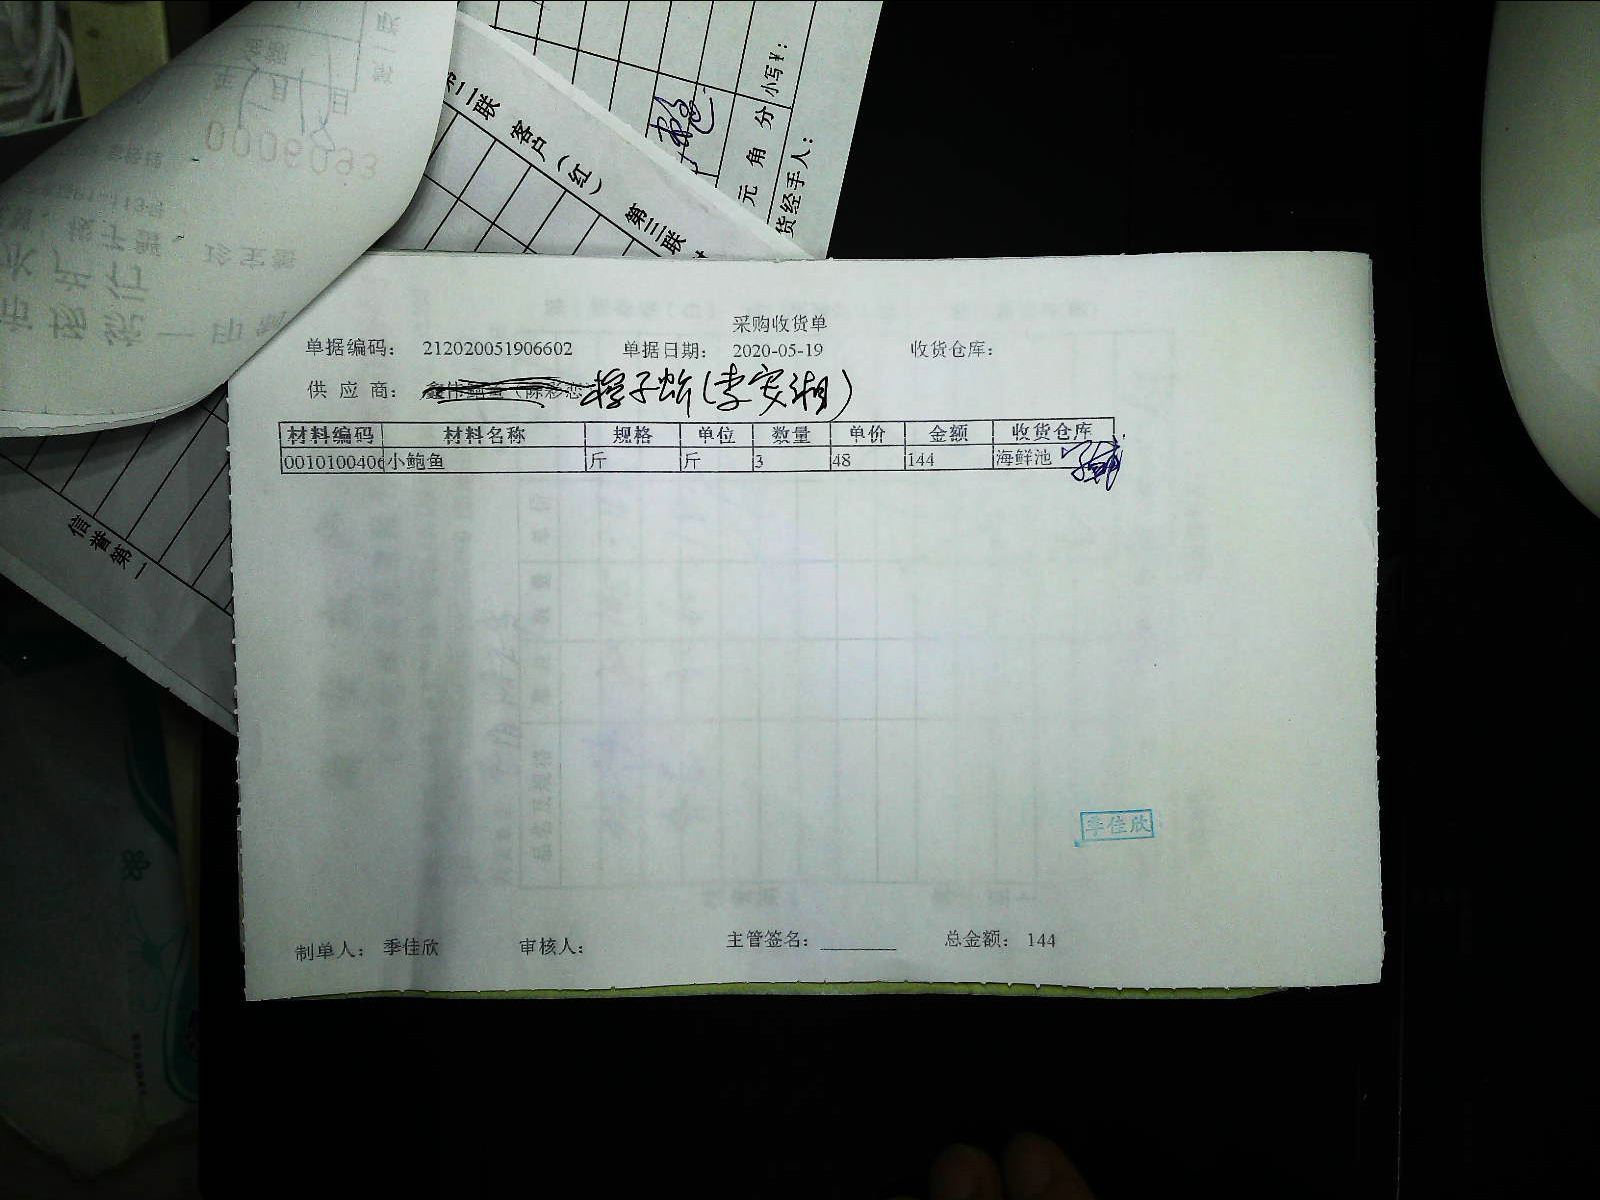 第二联 客户（红） 第三联
元 角 分
小写¥：
货经手人：
0006093
市场统一印制
信誉第一
采购收货单
单据编码： 212020051906602 单据日期： 2020-05-19 收货仓库：
供 应 商： (李安湖)
材料编码 材料名称 规格 单位 数量 单价 金额 收货仓库
0010100406 小鲍鱼 斤 斤 3 48 144 海鲜池
季佳欣
制单人： 季佳欣 审核人： 主管签名： 总金额： 144